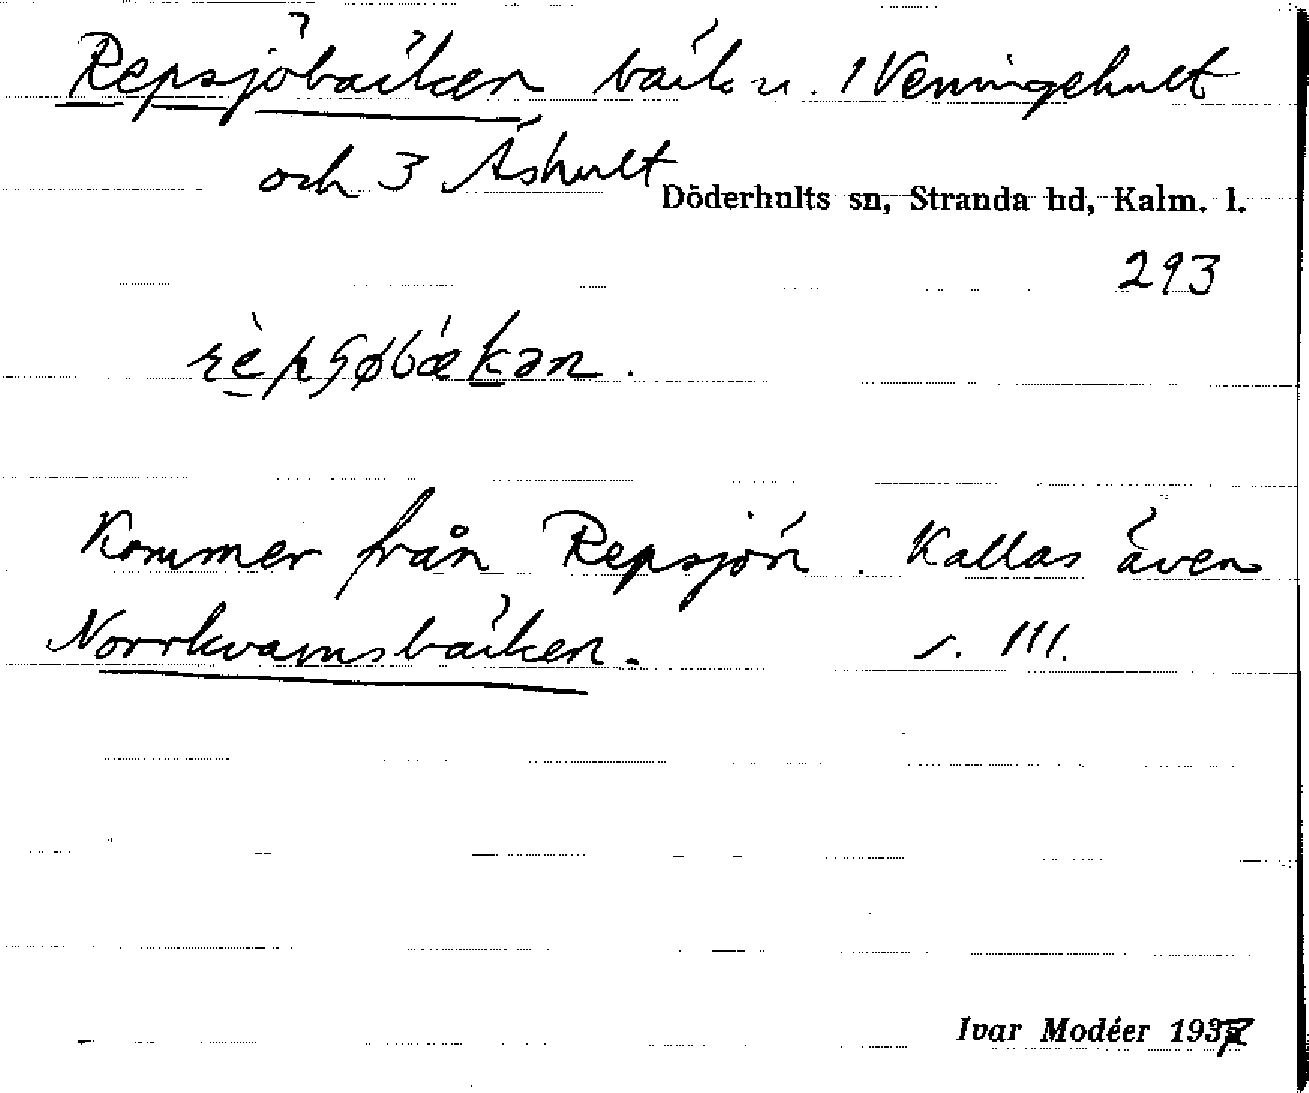 Repsjöbäcken bäck n. 1 Venningehult
och 3 Åshult
Döderhults sn, Stranda hd, Kalm. l.
293
rèpʂøbækən.
Kommer från Repsjön. Kallas även
Norrkvarnsbäcken. s. 111.
Ivar Modéer 1937